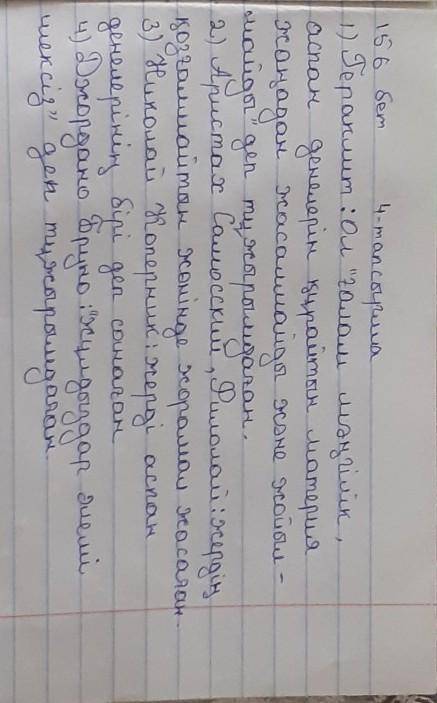 156 бет 4-тапсырма
1) Гераклит: Ол "ғалам мәңгілік,
аспан денелерін құрайтын материя
жаңадан жасалмайды және жойыл-
майды" деп тұжырымдаған.
2) Аристах Самосский, Филолай: жердің
қозғалмайтын жөнінде жорамал жасаған.
3) Николай Коперник: жерді аспан
денелерінің бірі деп санаған
4) Джордано Бруно: "жұлдыздар әлемі
шексіз" деп тұжырымдаған